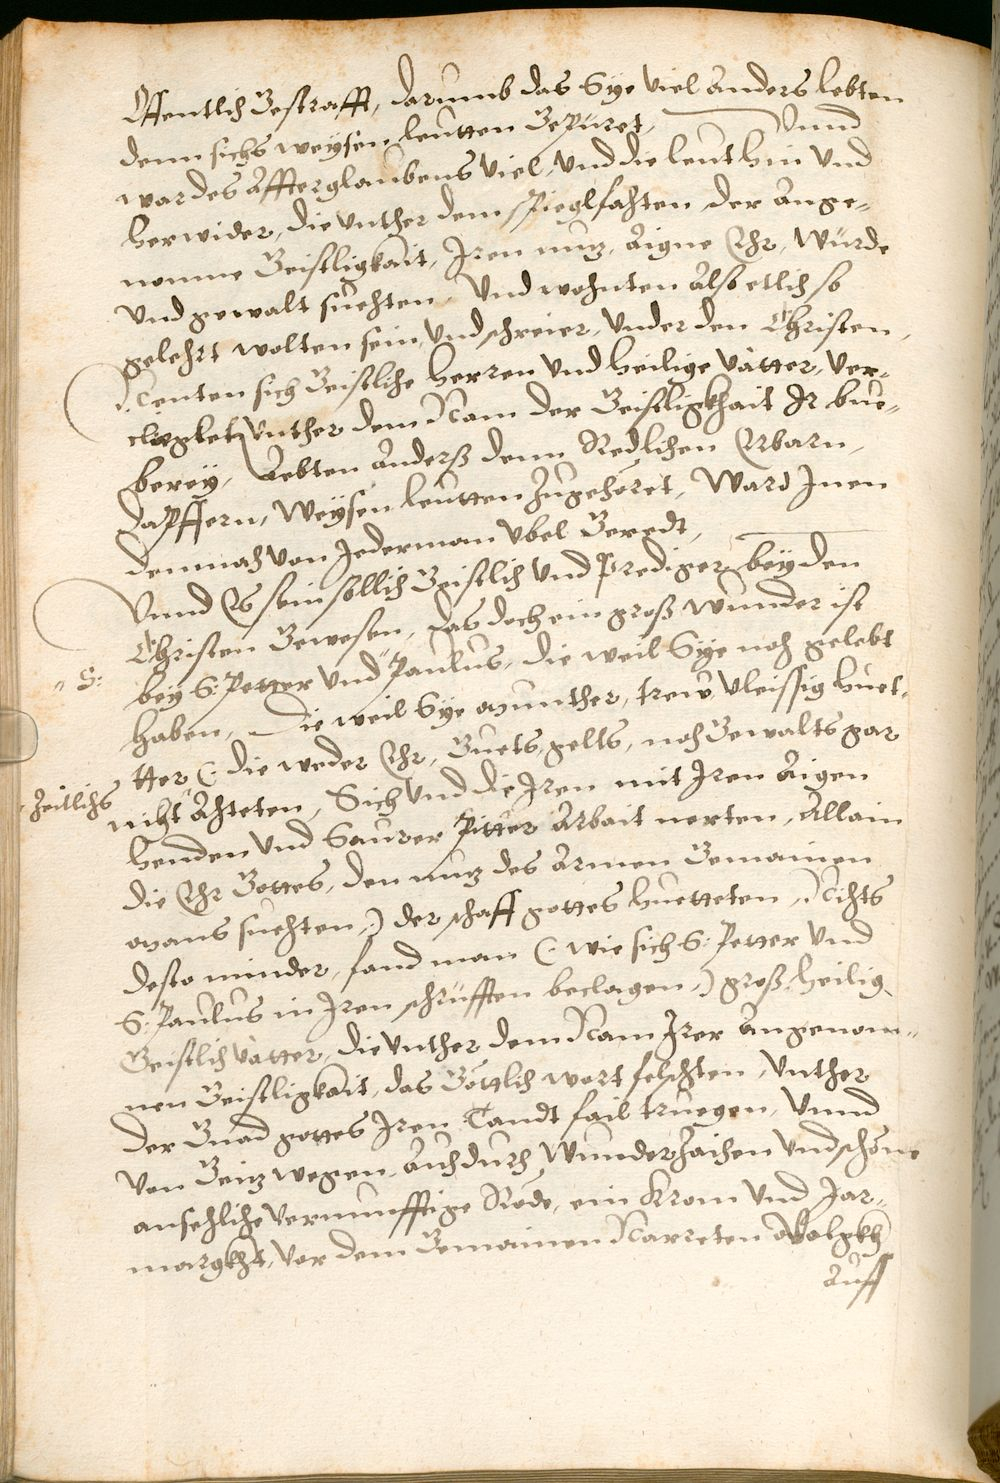 Offentlich Gestrafft, darumb das Sye viel Anders lebten
denn sichs weÿsen leutten Gepüret, Unnd
war des Affterglaubens Viel, Und die leut hin Und
herwider, die Unther dem spieglfechten der Ange„
nomne Geistligkait, Iren nuz, Aigne Ehr, Würde
Und gewalt suechten, Und wohnten Also etlich so
gelehrt wolten sein, Und schreier, Under den Christen,
Nenten sich Geistliche Herren Und Heilige Vätter, Ver„
Unther dem Nam der Geistligkhait Ir bue„
bereÿ, Lebten Anderß denn Redlichen Erbarn,
dapffern, Weÿsen leutten Zugehöret, Ward Inen
demnach von Jederman Ubel Geredt,
Unnd Es sein sollich Geistlich Und Prediger beÿ den
Christen Gewesen, das doch ein groß wunder ist
„ S:
beÿ S: Petter Und „ Paulus, die weil Sye noch gelebt
haben, Die weil Sye munther, trew Vleissig huet„
tter (: die weder Ehr, Guets, gelts, noch Gewalts gar
Zeitlichs
nicht Achteten, Sich Und die Iren mit Iren Aigen
henden Und Saurer Pitter Arbait nerten, Allain
die Ehr Gottes, den nuz des Armen Gemainen
mans suechten,:) der schaff gottes huetteten, Nichts
desto minder, fand man (: wie sich S: Petter Und
S: Paulus in Iren schrüfften beclagen,:) groß heilig
Geistlich Vätter, die Unther dem Nam Irer Angenom„
nen Geistligkait, das Göttlich wort felschten, Unther
der Gnad gottes Iren Tandt fail truegen, Unnd
Von Geiz wegen, Auch durch Wunderzaichen Und schöne
ansehliche Vernunfftige Rede, ein Krom Und Jar„
marckht, Vor dem Gemainen Narreten Volgkh
Auff